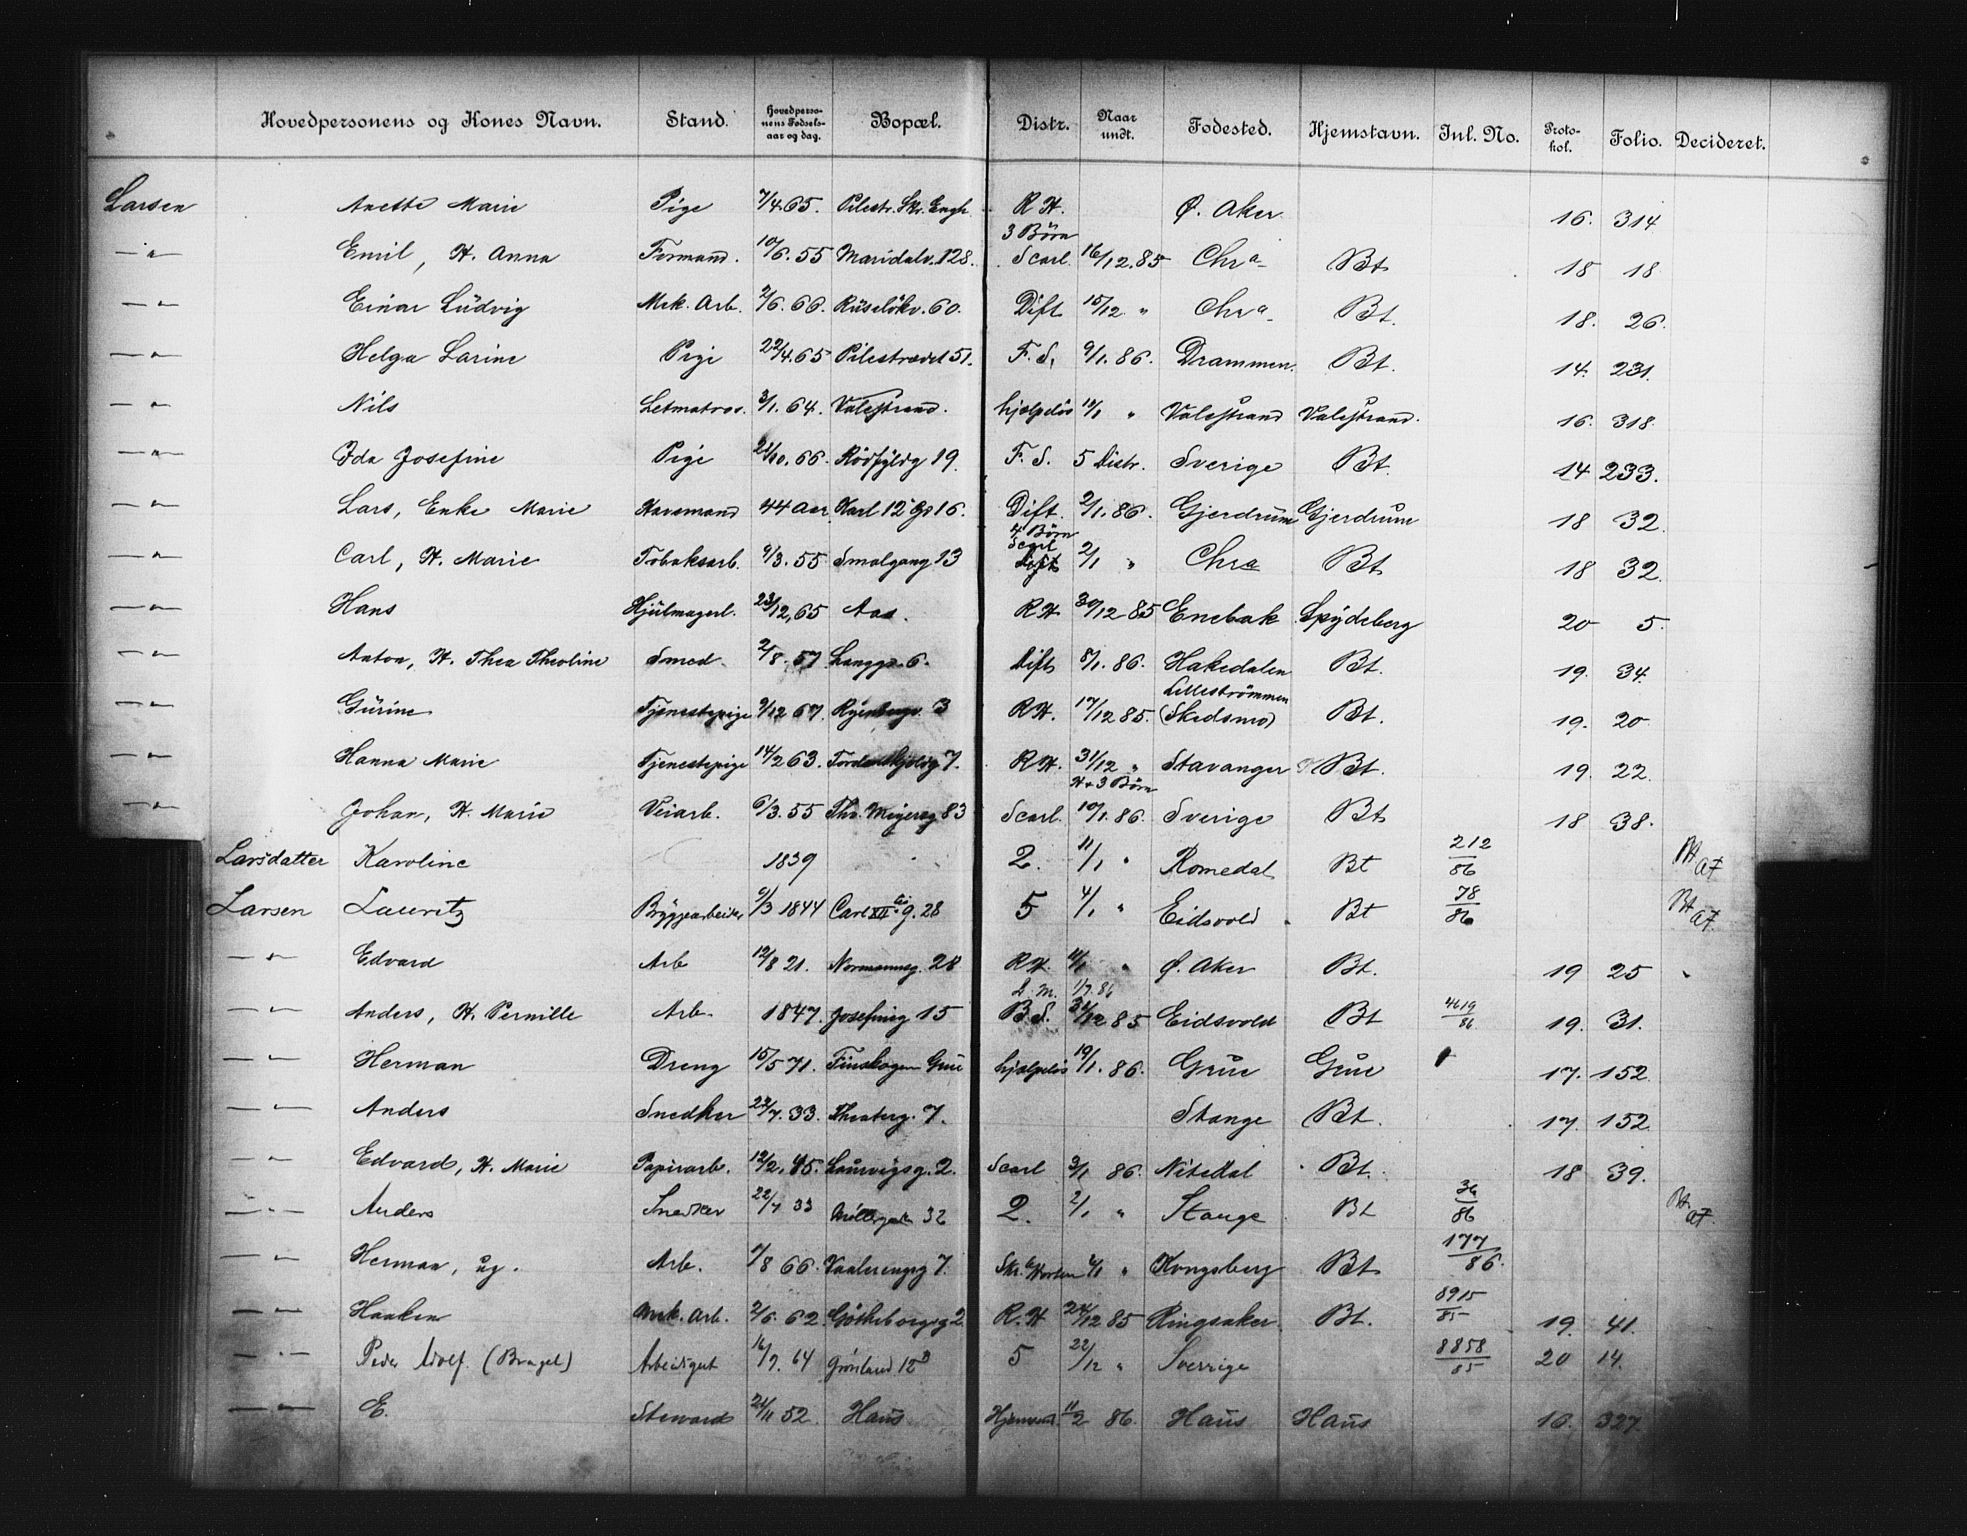 Hovedpersonens og Kones Navn. Stand. Hovedpersonens Fødsels-aar og dag. Bopæl. Distr. Naar undt. Fødested. Hjemstavn. Inl. No. Protokol. Folio. Decideret.
Larsen Anette Marie Pige 7/4.65. Pilestr. Skr. Engh. R H. Ø. Aker 16. 314
— " — Emil, H. Anna Formand. 10/6.55 Maridalv. 128. 3 Børn Scarl. 16/12.85 Chra Bt 18 18
— " — Einar Ludvig Mek. Arb. 2/6.66. Ruseløkv. 60. Dift 15/12 " Chra Bt. 18. 26.
— " — Helga Larine Pige 22/4.65 Pilestrædet 51. F. S. 9/1.86. Drammen. Bt. 14. 231.
— " — Nils Letmatros. 3/1.64. Valestrand. hjælpeløs 12/1 " Valestrand Valestrand. 16. 318.
— " — Ida Josefine Pige 21/10.66. Rødfyldg 19. F. S. 5 Distr. Sverige Bt. 14 233.
— " — Lars, Enke Marie Havnmand 44 Aar Karl 12 Gd 16. Dift. 2/1.86. Gjerdrum Gjerdrum 18 32.
— " — Carl, H. Marie Tobaksarb. 9/3.55 Smalgang 13 4 Børn Scarl 2/1 " Chra Bt 18 32.
— " — Hans Hjulmagerl. 23/12.65 Aas. R H 30/12 85 Enebak Spydeberg 20 5.
— " — Anton, H. Thea Theoline Smed. 2/8.57 Langg. 6. Dift 8/1.86. Hakedalen Bt. 19. 34.
— " — Gurine Tjenestepige 9/12 67. Ryenbergv. 3 R H. 17/12 85. Lillestrømmen (Skedsmo) Bt. 19. 20.
— " — Hanna Marie Tjenestepige 14/2 63. Tordenskjoldg 7. R H. 31/12 " Stavanger Bt. 19. 22.
— " — Johan, H. Marie Veiarb. 6/3.55 Ths. Meyersg 83 Scarl. H + 3 Børn 10/1.86. Sverige Bt 18 38.
Larsdatter Karoline 1839 2. 11/1 " Romedal Bt 212/86 Bt. af
Larsen Lauritz Bryggearbeider 9/3 1844 Carl XII g. 28 5 4/1 " Eidsvold Bt 78/86 Bt. af.
— " — Edvard Arb 12/8 21. Normannsg. 28 R H. 11/1 " Ø. Aker Bt. 19 25
— " — Anders, H. Pernille Arb. 1847. Josefineg 15 L. M. 1/7.86 B. S. 31/12 85 Eidsvold Bt 4619/86 19. 31.
— " — Herman Dreng 15/5 71. Finskogen Grue hjælpeløs 19/1.86. Grue Grue 17. 152.
— " — Anders Snedker 22/7.33. Theaterg. 7. Stange Bt. 17. 152.
— " — Edvard, H. Marie Papirarb. 12/2.45. Laurvigsg. 2. Scarl 3/1 86. Nitedal Bt. 18 39.
— " — Anders Snedker 22/7 33 Møllergaden 32 2. 2/1 " Stange Bt 36/86 Bt. af.
— " — Herman, ug. Arb. 1/8 66. Vaalerengsg 7. 4/1 " Kongsberg Bt 177/86.
— " — Haaken Mek. Arb. 2/6.62. Gøtheborgsg 2 R. H 24/12 85 Ringsaker. Bt. 8915/85 19. 41.
— " — Peder Adolf. (Bragel) Arbeidsgut 16/7.64 Grønland 12 B 5 22/12 " Sverrige 8858/85 20 14.
— " — E. Steward 21/11 52. Haus Hjemsend. 11/2 86. Haus Haus 16. 327